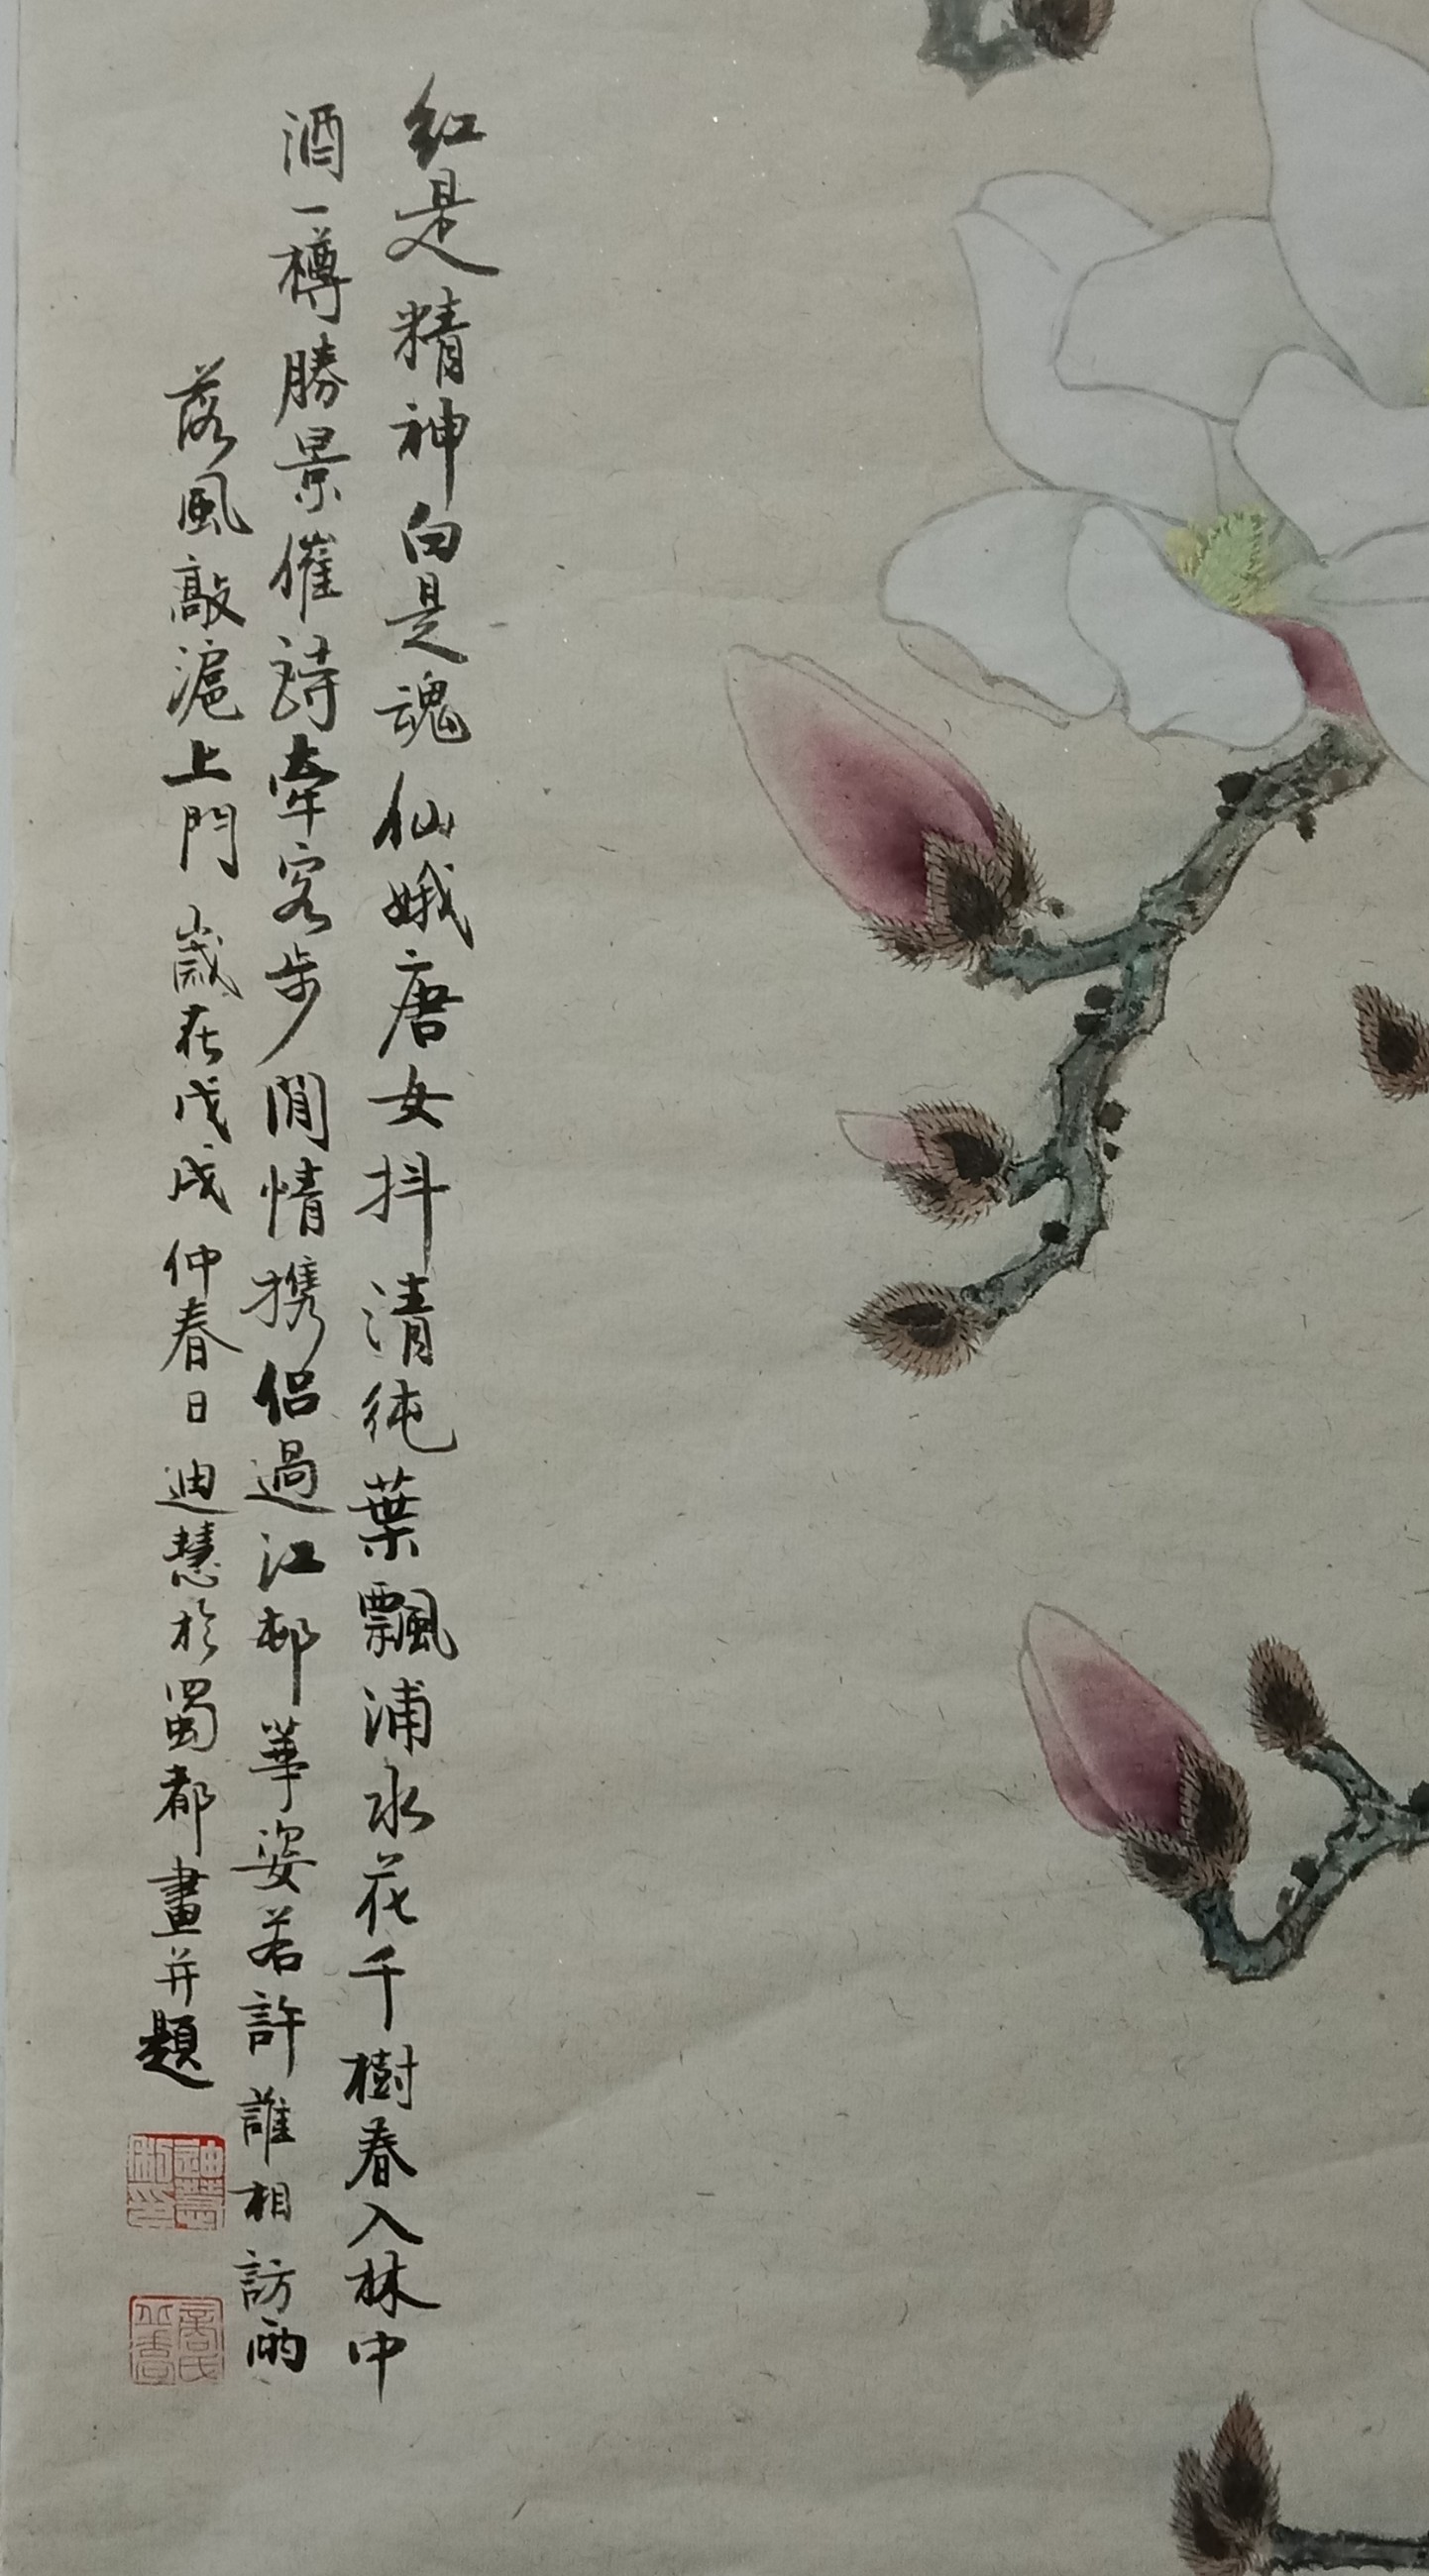 红是精神白是魂仙娥唐女抖清纯葉飄浦水花千樹春入林中
酒一樽勝景催詩牽客步閒情携侣過江邨華姿若許誰相訪雨
落風敲滬上門 歲在戊戌仲春日迪慧於蜀都畫并題